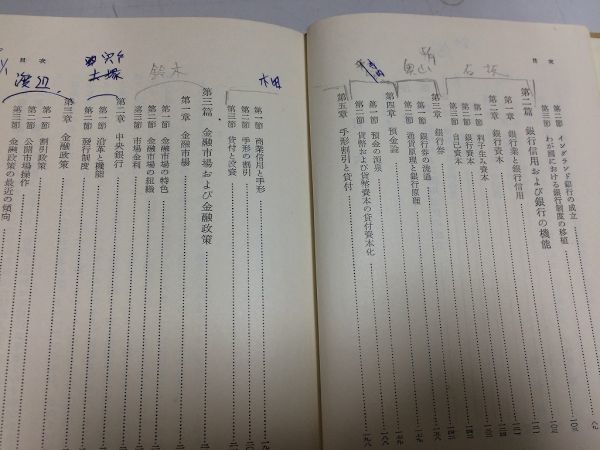 目次
第二節 イングランド銀行の成立
第三節 わが國における銀行制度の移植
第二篇 銀行信用および銀行の機能
第一章 銀行業と銀行信用
第二章 銀行資本
第一節 利子生み資本
第二節 自己資本
第三章 銀行券
第一節 銀行券の流通
第二節 通貨原理と銀行原理
第四章 預金論
第一節 預金の源泉
第二節 貨幣および貨幣資本の貸付資本化
第五章 手形割引と貸付
奥山
第一節 商業信用と手形
第二節 手形の割引
第三節 貸付と投資
第三篇 金融市場および金融政策
第一章 金融市場
第一節 金融市場の特色
第二節 金融市場の組織
第三節 市場金利
第二章 中央銀行
第一節 沿革と機能
第二節 發行制度
第三章 金融政策
第一節 割引政策
第二節 公開市場操作
第三節 金融政策の最近の傾向
目次
本田
鈴木
渡辺